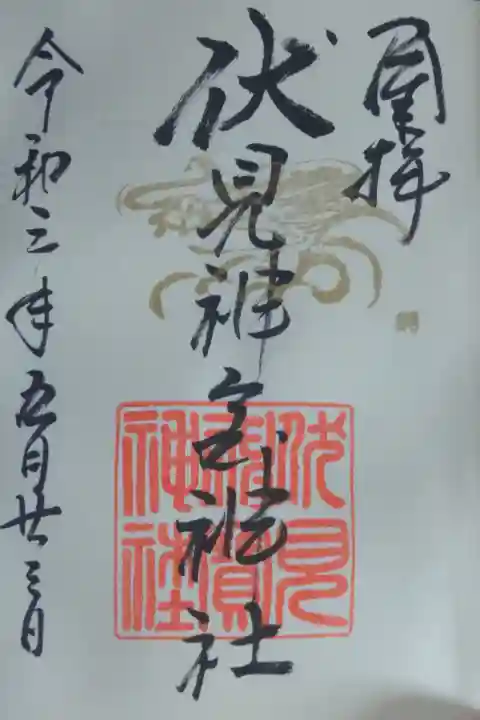 拝
伏見神宝神社
令和三年五月廿三日
伏見
神寶
神社